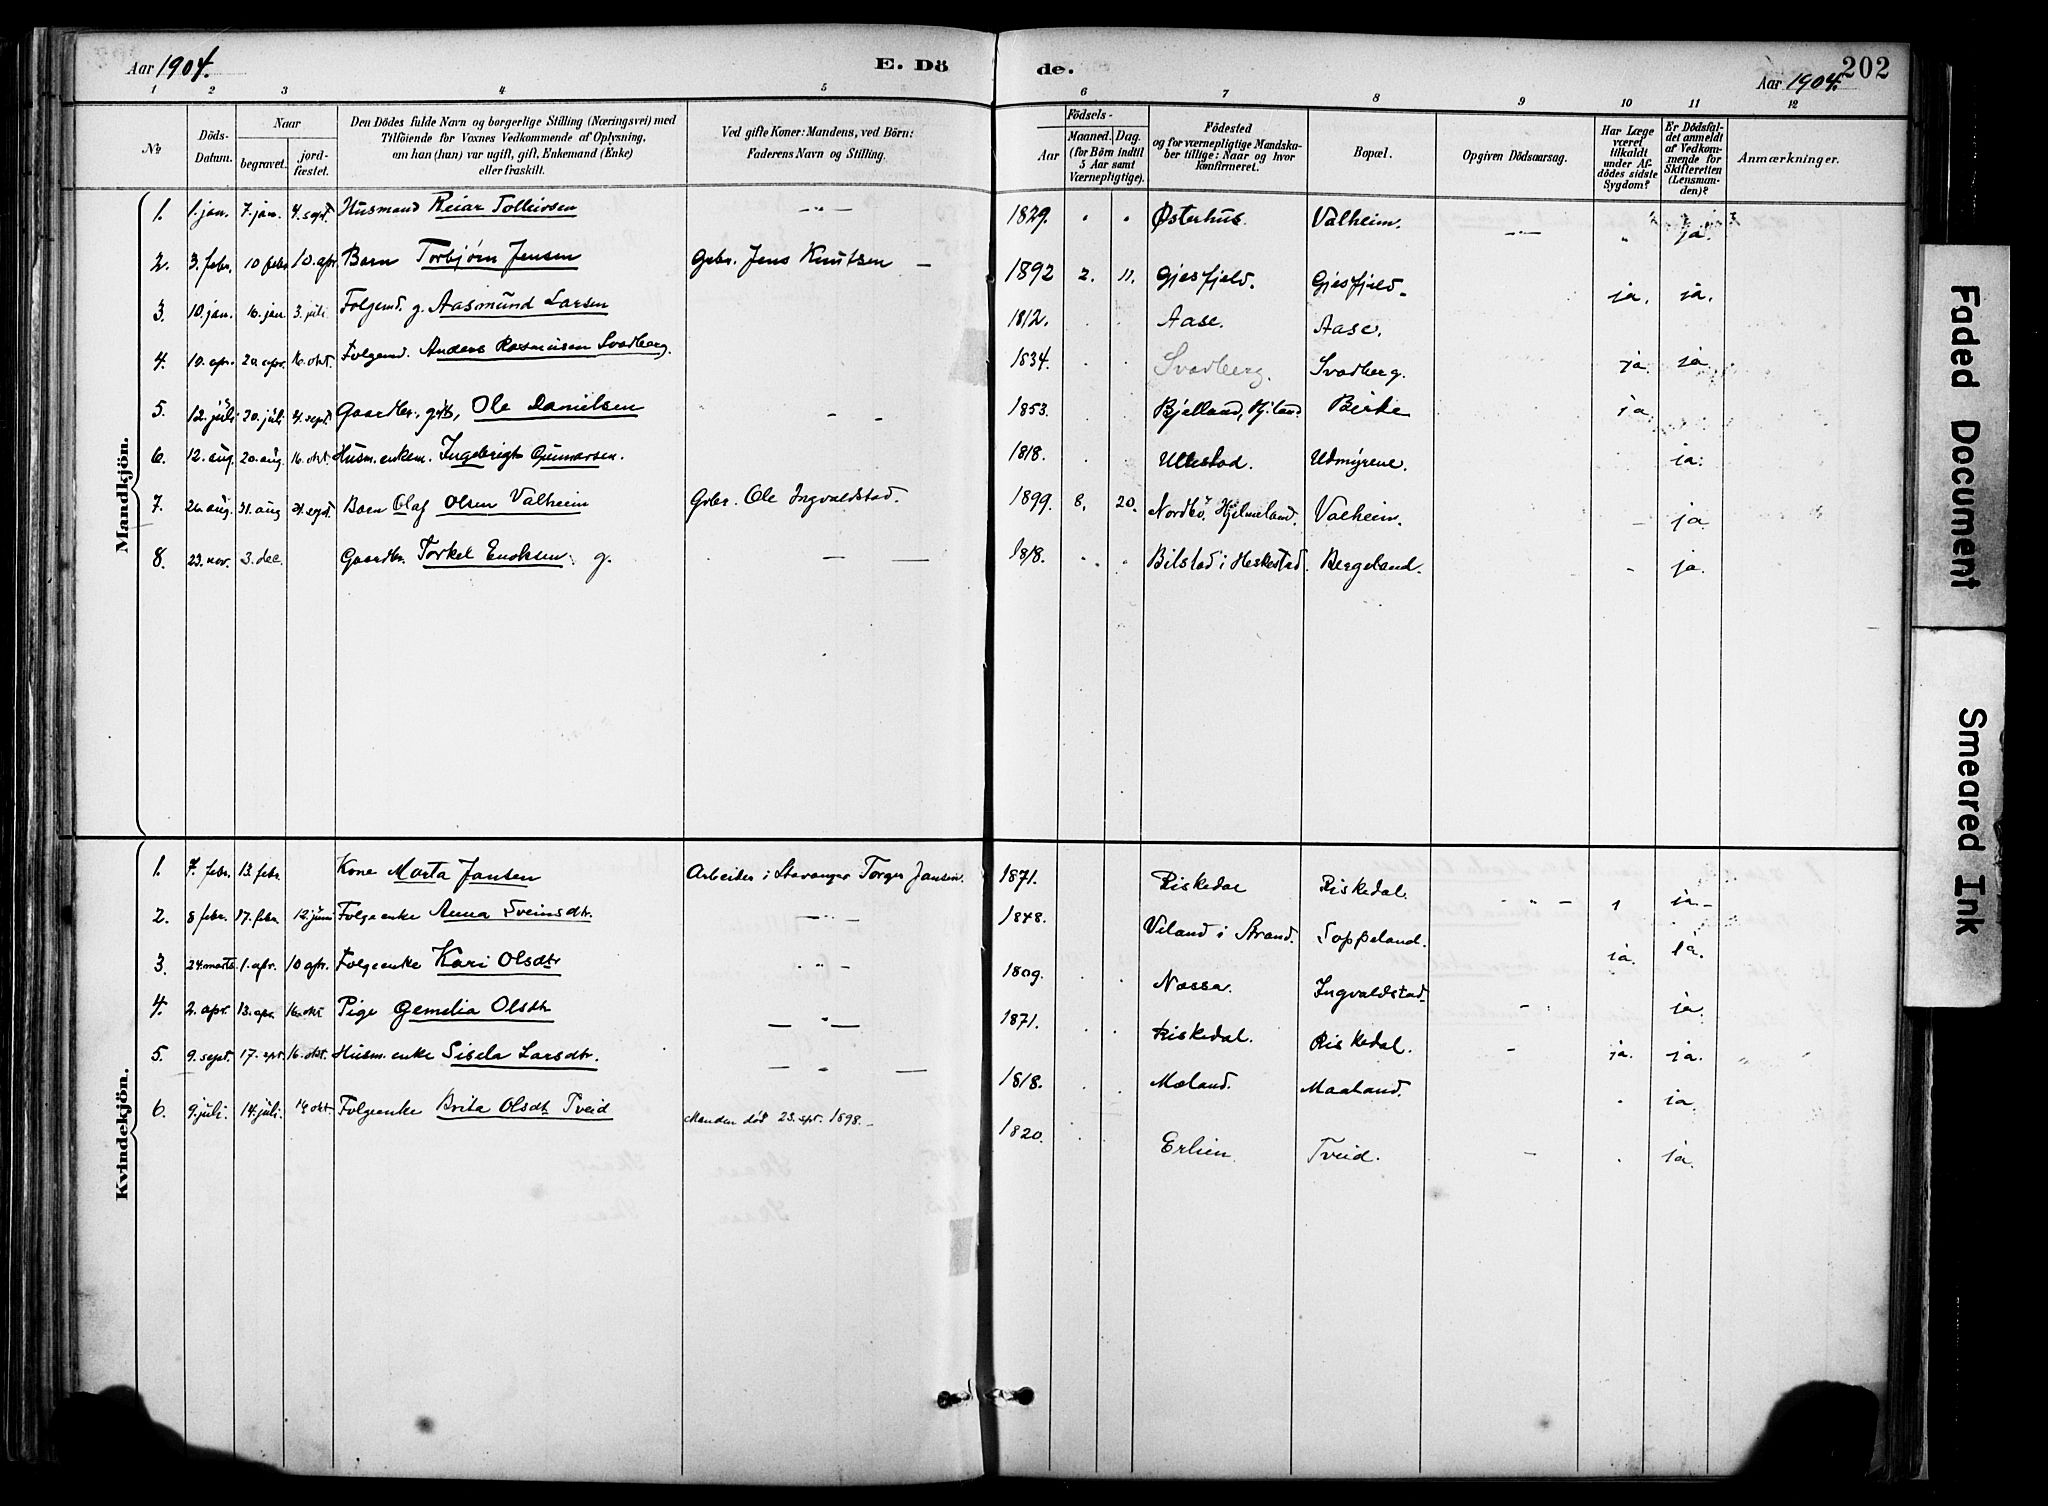 Aar 1904. E. Dö de. Aar 1904. 202
1 2 3 4 5 6 7 8 9 10 11 12
No Döds-Datum. Naar begravet. jordfæstet. Den Dödes fulde Navn og borgerlige Stilling (Næringsvei) med Tilföiende for Voxnes Vedkommende af Oplysning, om han (hun) var ugift, gift, Enkemand (Enke) eller fraskilt. Ved gifte Koner: Mandens, ved Börn: Faderens Navn og Stilling. Födsels- Aar Maaned. Dag. (for Börn indtil 5 Aar samt Værnepligtige). Födested og for værnepligtige Mandskaber tillige: Naar og hvor konfirmeret. Bopæl. Opgiven Dödsaarsag. Har Læge været tilkaldt under Afdödes sidste Sygdom? Er Dödsfaldet anmeldt af Vedkommende for Skifteretten (Lensmanden)? Anmærkninger.
Mandkjön.
1. 1. jan. 7. jan. 4. sept. Husmand Reiar Tolleivsen 1829. Østerhus. Valheim. ja.
2. 3. febr. 10 febr 10. apr. Barn Torbjørn Jensen Grbr. Jens Knutsen 1892 2. 11. Gjesfjeld. Gjesfjeld. ja. ja.
3. 10. jan. 16. jan 3. juli Folgemd. g. Aasmund Larsen 1812. Aase. Aase.
4. 10. apr. 20. apr. 16. okt. Folgemd. Anders Rasmusen Svadberg. 1834. Svadberg. Svadberg. ja. ja
5. 12. juli 20. juli 4. sept. Gaardbr. gift, Ole Danielsen 1853. Bjelland, Birke ja
6. 12. aug. 20. aug. 16. okt. Husm. enkem. Ingebrigt Gunnarsen. 1818. Ullestad. Udmyrene. ja.
7. 26. aug. 31. aug 4. sept. Barn Olaf Olsen Valheim Grbr. Ole Ingvaldstad. 1899 8. 20. Nordbö, Hjelmeland. Valheim. ja
8. 23. nov. 3. dec. Gaardbr. Torkel Enoksen. g. 1818. Bilstad i Heskestad. Bergeland. ja.
Kvindekjön.
1. 7. febr. 13. febr Kone Marta Jansen Arbeider i Stavanger Torger Jansen. 1871. Riskedal Riskedal. ja.
2. 8 febr. 17. febr 12. juni Folgeenke Anna Sveinsdtr. 1848. Veland i Strand. Soppeland. ja. ja.
3. 24. marts 1. apr. 10 apr. Folgeenke Kari Olsdtr 1809. Nessa. Ingvaldstad. ja.
4. 2. apr. 13. apr. 16. okt Pige Gemelia Olsdtr 1871. Riskedal. Riskedal. ja. ja.
5. 9. sept. 17. spt. 16. okt. Husm. enke Sisela Larsdtr. 1818. Meland. Maaland. ja.
6. 9. juli. 14. juli. 16 okt. Folgeenke Brita Olsdtr Tveid Manden död 23. apr. 1898. 1820. Erlien Tveid. ja.
Faded Document
Smeared Ink